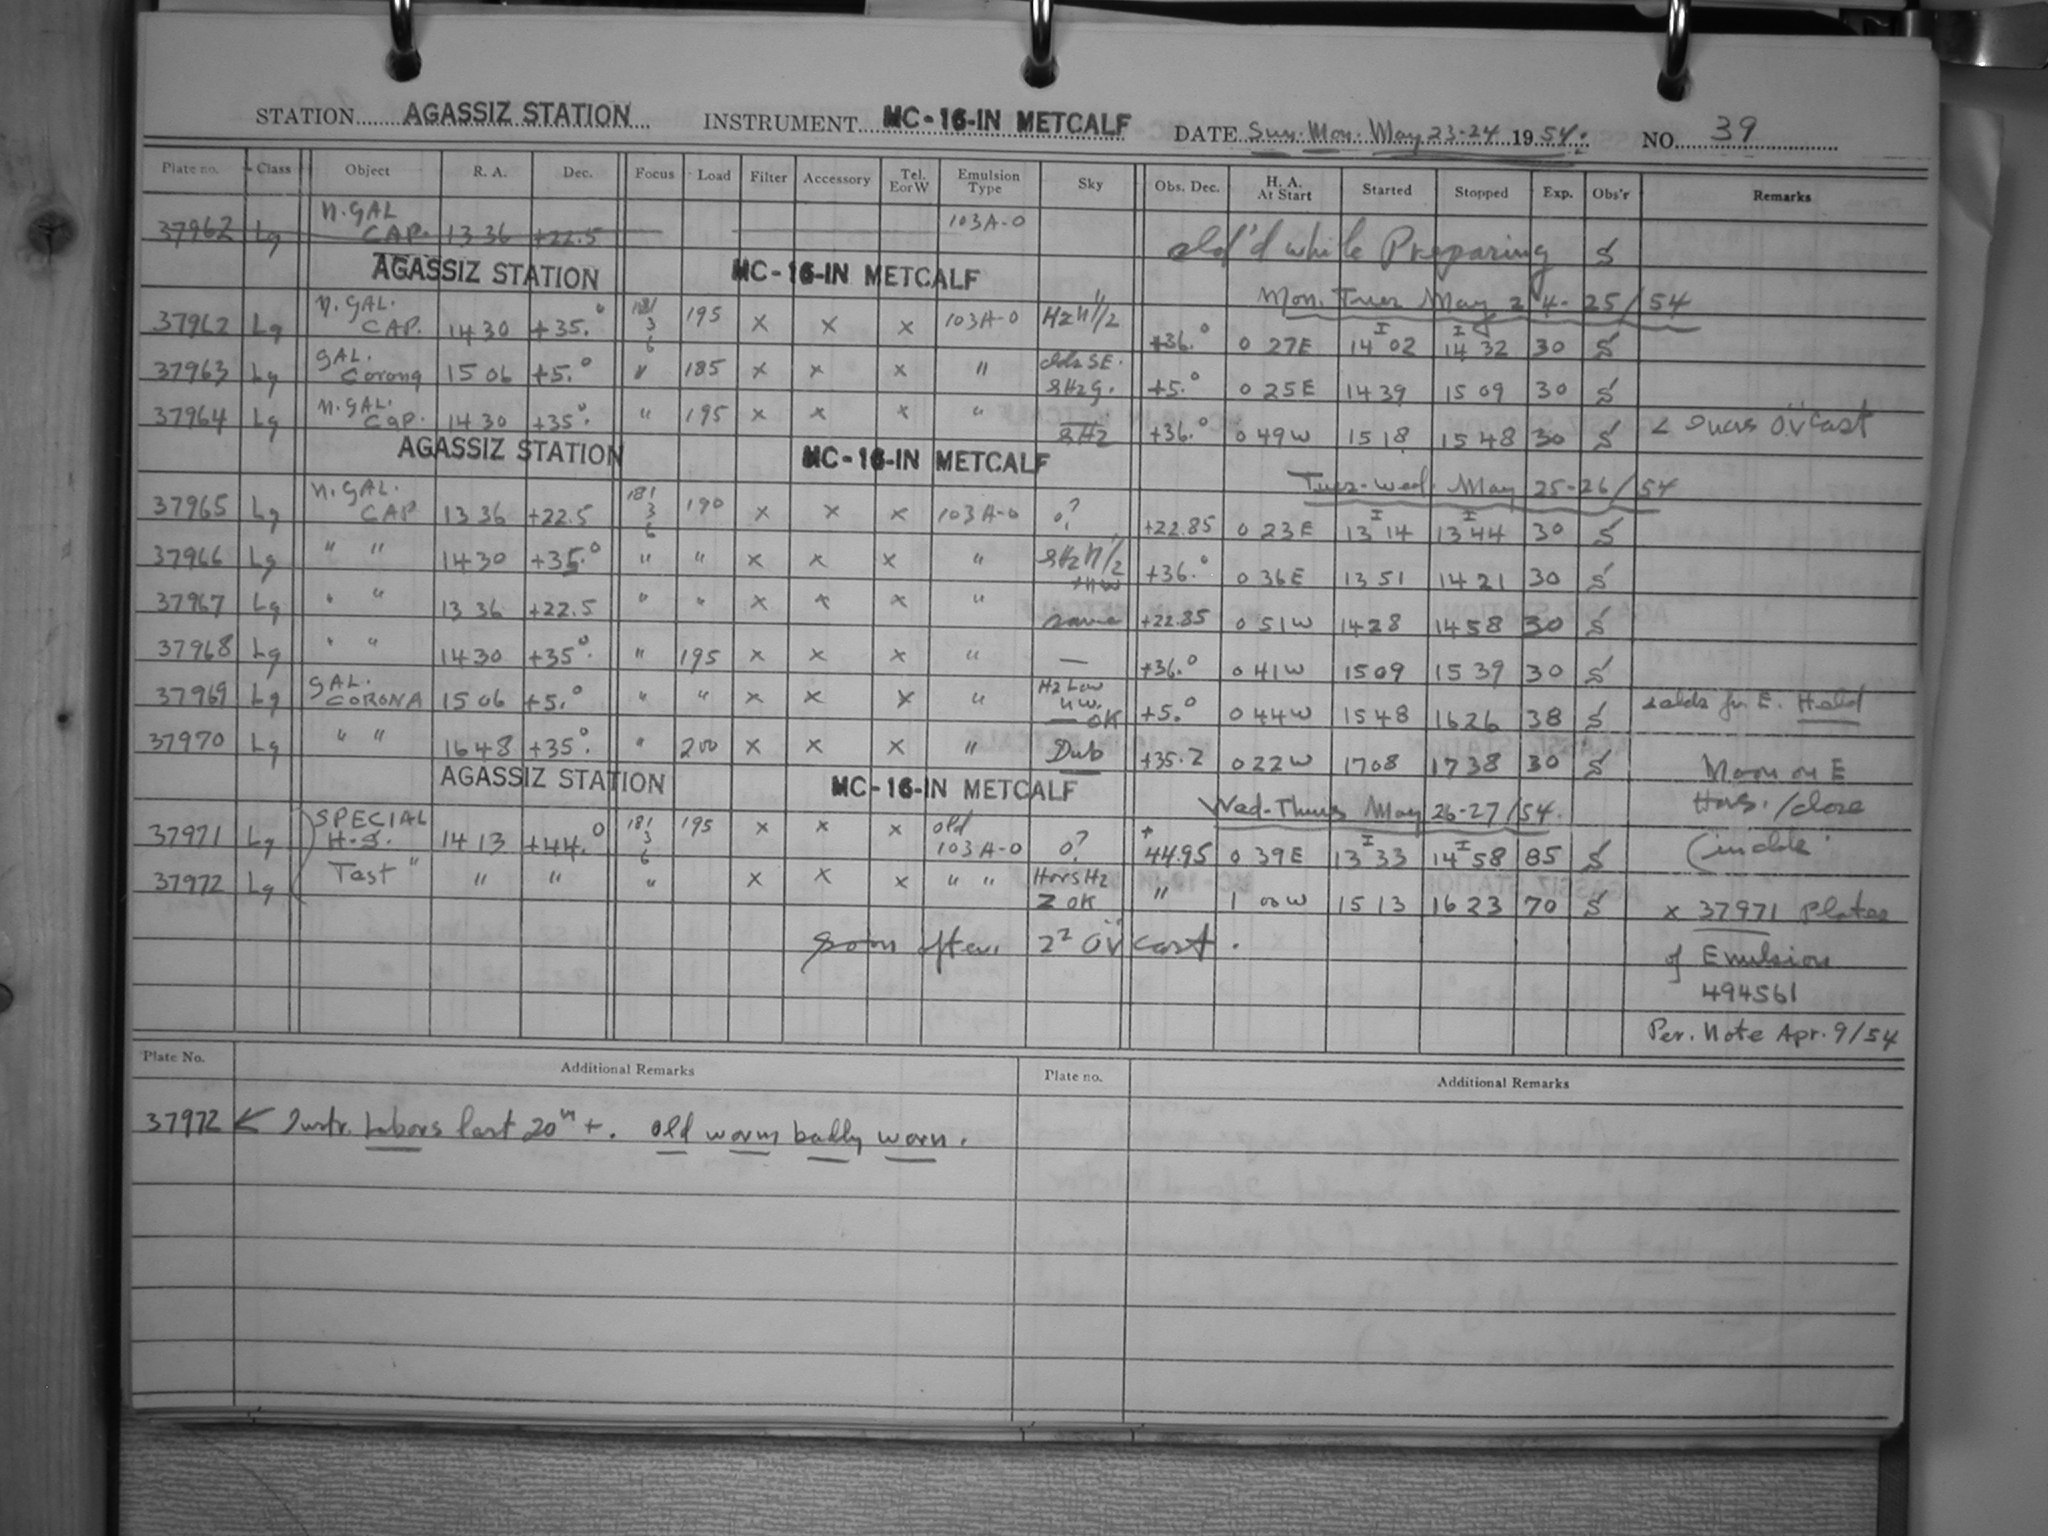 STATION AGASSIZ STATION INSTRUMENT MC-16-IN METCALF DATE Sun. Mon. May 23-24 1954. NO. 39
Plate no. Class Object R. A. Dec. Focus Load Filter Accessory Tel. E or W Emulsion Type Sky Obs. Dec. H. A. At Start Started Stopped Exp. Obs'r Remarks
37962 Lg N. GAL CAP. 13 36 +22.5 103A-O cld'd while Preparing S
AGASSIZ STATION MC-16-IN METCALF Mon. Tues May 24-25/54
37962 Lg N. GAL. CAP. 14 30 +35.° 181 3 6 195 x x x 103A-O Hz N 1/2 +36.° 0 27E 14 02 14 32 30 S
37963 Lg GAL. Corona 15 06 +5.° " 185 x x x " clds SE. +5.° 0 25E 14 39 15 09 30 S
37964 Lg N. GAL. Cap. 14 30 +35°. " 195 x x x " SHz +36.° 0 49W 15 18 15 48 30 S Ov̈cast
AGASSIZ STATION MC-16-IN METCALF Tues-Wed. May 25-26/54
37965 Lg N. GAL. CAP 13 36 +22.5 181 3 6 190 x x x 103A-O o? +22.85 0 23E 13 14 13 44 30 S
37966 Lg " " 14 30 +35.° " " x x x " SHz N 1/2 +NW +36.° 0 36E 13 51 14 21 30 S
37967 Lg " " 13 36 +22.5 " " x x x " same +22.85 0 51W 14 28 14 58 30 S
37968 Lg " " 14 30 +35°. " 195 x x x " — +36.° 0 41W 15 09 15 39 30 S
37969 Lg GAL. CORONA 15 06 +5.° " " x x x " Hz Low NW. — OK +5.° 0 44W 15 48 16 26 38 S clds for E. Held
37970 Lg " " 16 48 +35°. " 200 x x x " Dub +35.2 0 22W 17 08 17 38 30 S Moon on E
AGASSIZ STATION MC-16-IN METCALF Wed-Thurs May 26-27/54. Hors. /close
37971 Lg SPECIAL H.S. 14 13 +44.° 181 3 6 195 x x x old 103A-O o? +44.95 0 39E 13 33 14 58 85 S (in clds
37972 Lg Test " " " " x x x " " Hors Hz Z OK " 1 00W 15 13 16 23 70 S x 37971 Plates
soon after. Ov̈cast. of Emulsion
494561
Per. Note Apr. 9/54
Plate No. Additional Remarks Plate no. Additional Remarks
37972 ← Instr. Labors last 20ᵐ +. Old worm badly worn.